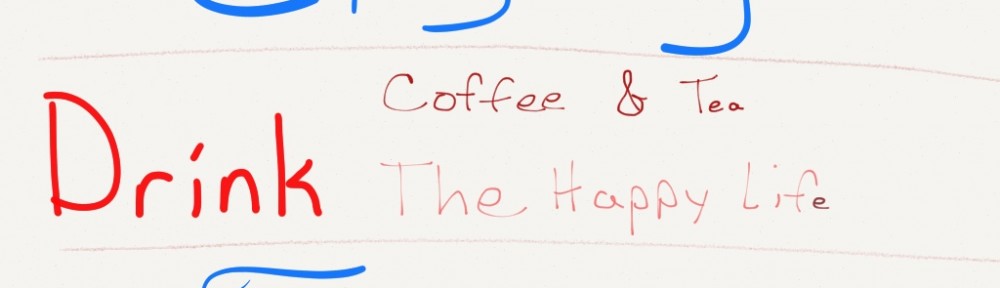 Drink
Coffee & Tea
The Happy Life